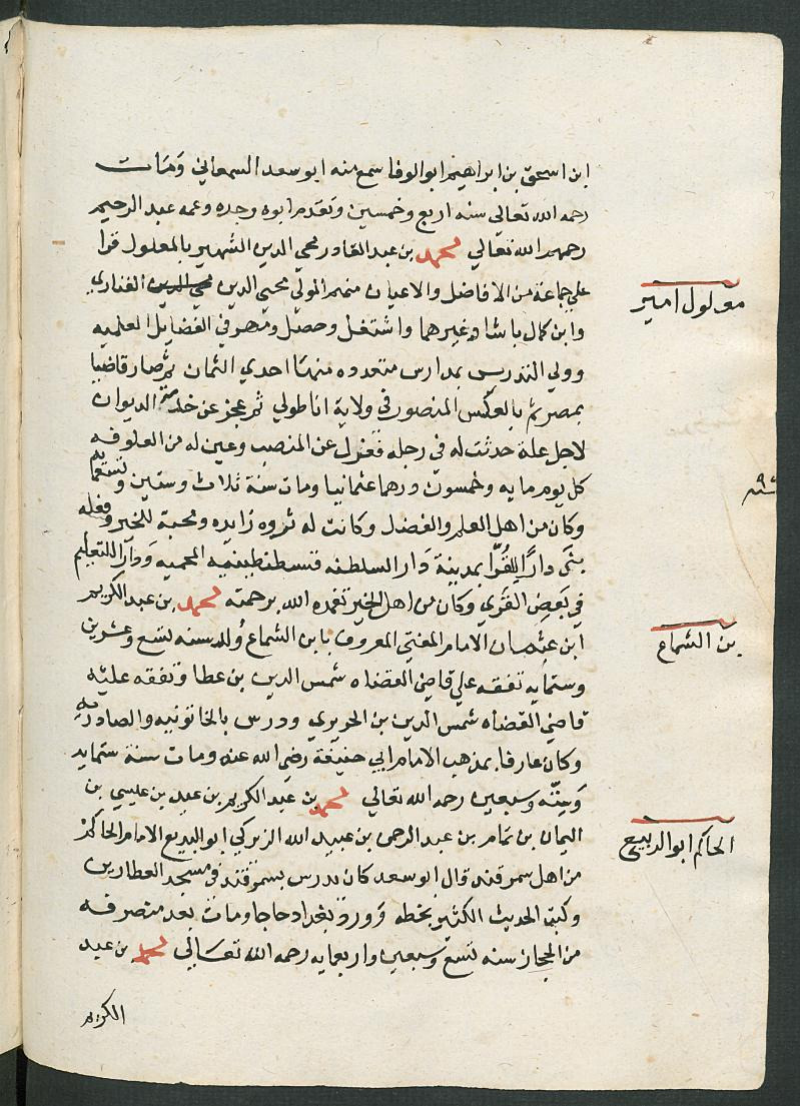 ابن اسحق بن ابراهيم ابو الوفا سمع منه ابو سعد السمعاني ومات
رحمه الله تعالى سنه اربع وخمسين وتقدم ابوه وجده وعمه عبد الرحيم
رحمهم الله تعالي محمد بن عبد القادر محي الدين الشهير بالمعلول قرا
علي جماعة من الافاضل والاعيان منهم المولي محيي الدين الفناري
معلول امير
وابن كمال باشا وغيرهما واشتغل وحصل ومهر في الفضايل العلميه
وولي التدريس بمدارس متعدده منها احدي الثمان ثم صار قاضيا
بمصر ثم بالعسكر المنصور في ولاية اناطولي ثم عجز عن خدمة الديوان
لاجل علة حدثت له في رجله فعزل عن المنصب وعين له من العلوفه
كل يوم مايه وخمسون درهما عثمانيا ومات سنة ثلاث وستين وتسعمايه
وكان من اهل العلم والفضل وكانت له ثروه زايده ومحبة للخير وفعله
بنى دارا للقرا بمدينة دار السلطنه قسطنطينيه المحميه ودارا للتعليم
في بعض القري وكان من اهل الخير تغمده الله برحمته محمد بن عبد الكريم
ابن عثمان الامام المفتي المعروف بابن الشماع ولد سنه تسع وعشرين
بن الشماع
وستمايه تفقه علي قاضي القضاه شمس الدين بن عطا وتفقه عليه
قاضي القضاه شمس الدين بن الحريري ودرس بالخاتونيه والصادريه
وكان عارفا بمذهب الامام ابي حنيفة رضي الله عنه ومات سنة ستمايه
وستة وسبعين رحمه الله تعالي محمد بن عبد الكريم بن عبيد بن عليسي بن
اليمان بن تمام بن عبد الرحمن بن عبيد الله الزبركي ابو البديع الامام الحاكم
الحاكم ابو الربيع
من اهل سمرقند قال ابو سعد كان يدرس بسمرقند في مسجد العطارين
وكتب الحديث الكثير بخطه وورد بغداد حاجا ومات بعد منصرفه
من الحجاز سنه تسع وسبعين واربعمايه رحمه الله تعالى محمد بن عبد
الكريم